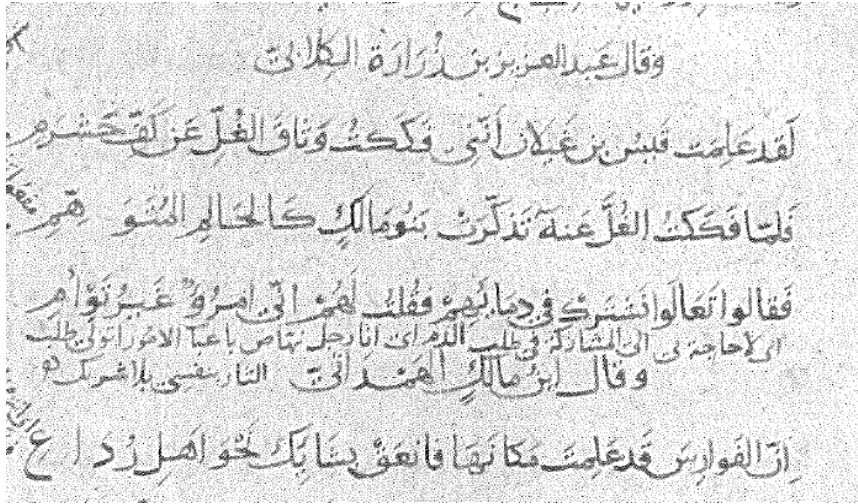 وقال عبد العزيز بن زرارة الكلابيّ
لَقد عَلِمَت قيسُ بن عَيلان أنّني فَكَكتُ وَثاقَ الغُلِّ عَن كَفِّ خَشرَمِ
فَلمّا فَكَكتُ الغُلَّ عَنهُ تَذَكَّرَتْ بَنُو مَالكٍ كَالحَالِمِ المُتَوَهِّمِ
فَقالوا تَعَالَوا نَشتَرِك في دِمَائِهِمْ فقُلتُ لَهُمْ اِنّي امرُؤٌ غَيرُ تَوْأمِ
اى لا حاجة لى الى المشاركة فى طلب الدم اى انا رجل نهاض باعبآ الامور اتولى طلب
الثار بنفسى بلا شريك
وقال ابن مالكٍ
اِنّ الفَوارِسَ قَد عَلِمتَ مَكانَهَا فانعَقْ بِشَائِكَ نَحْوَ اَهلِ رُدَاعِ